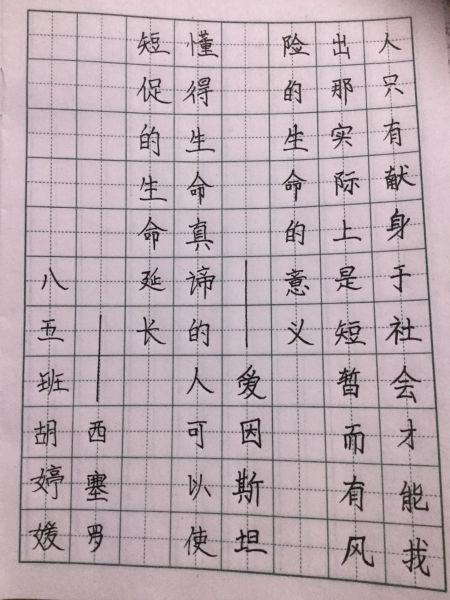 人只有献身于社会才能找
出那实际上是短暂而有风
险的生命的意义
——爱因斯坦
懂得生命真谛的人可以使
短促的生命延长
——西塞罗
八五班胡婷媛